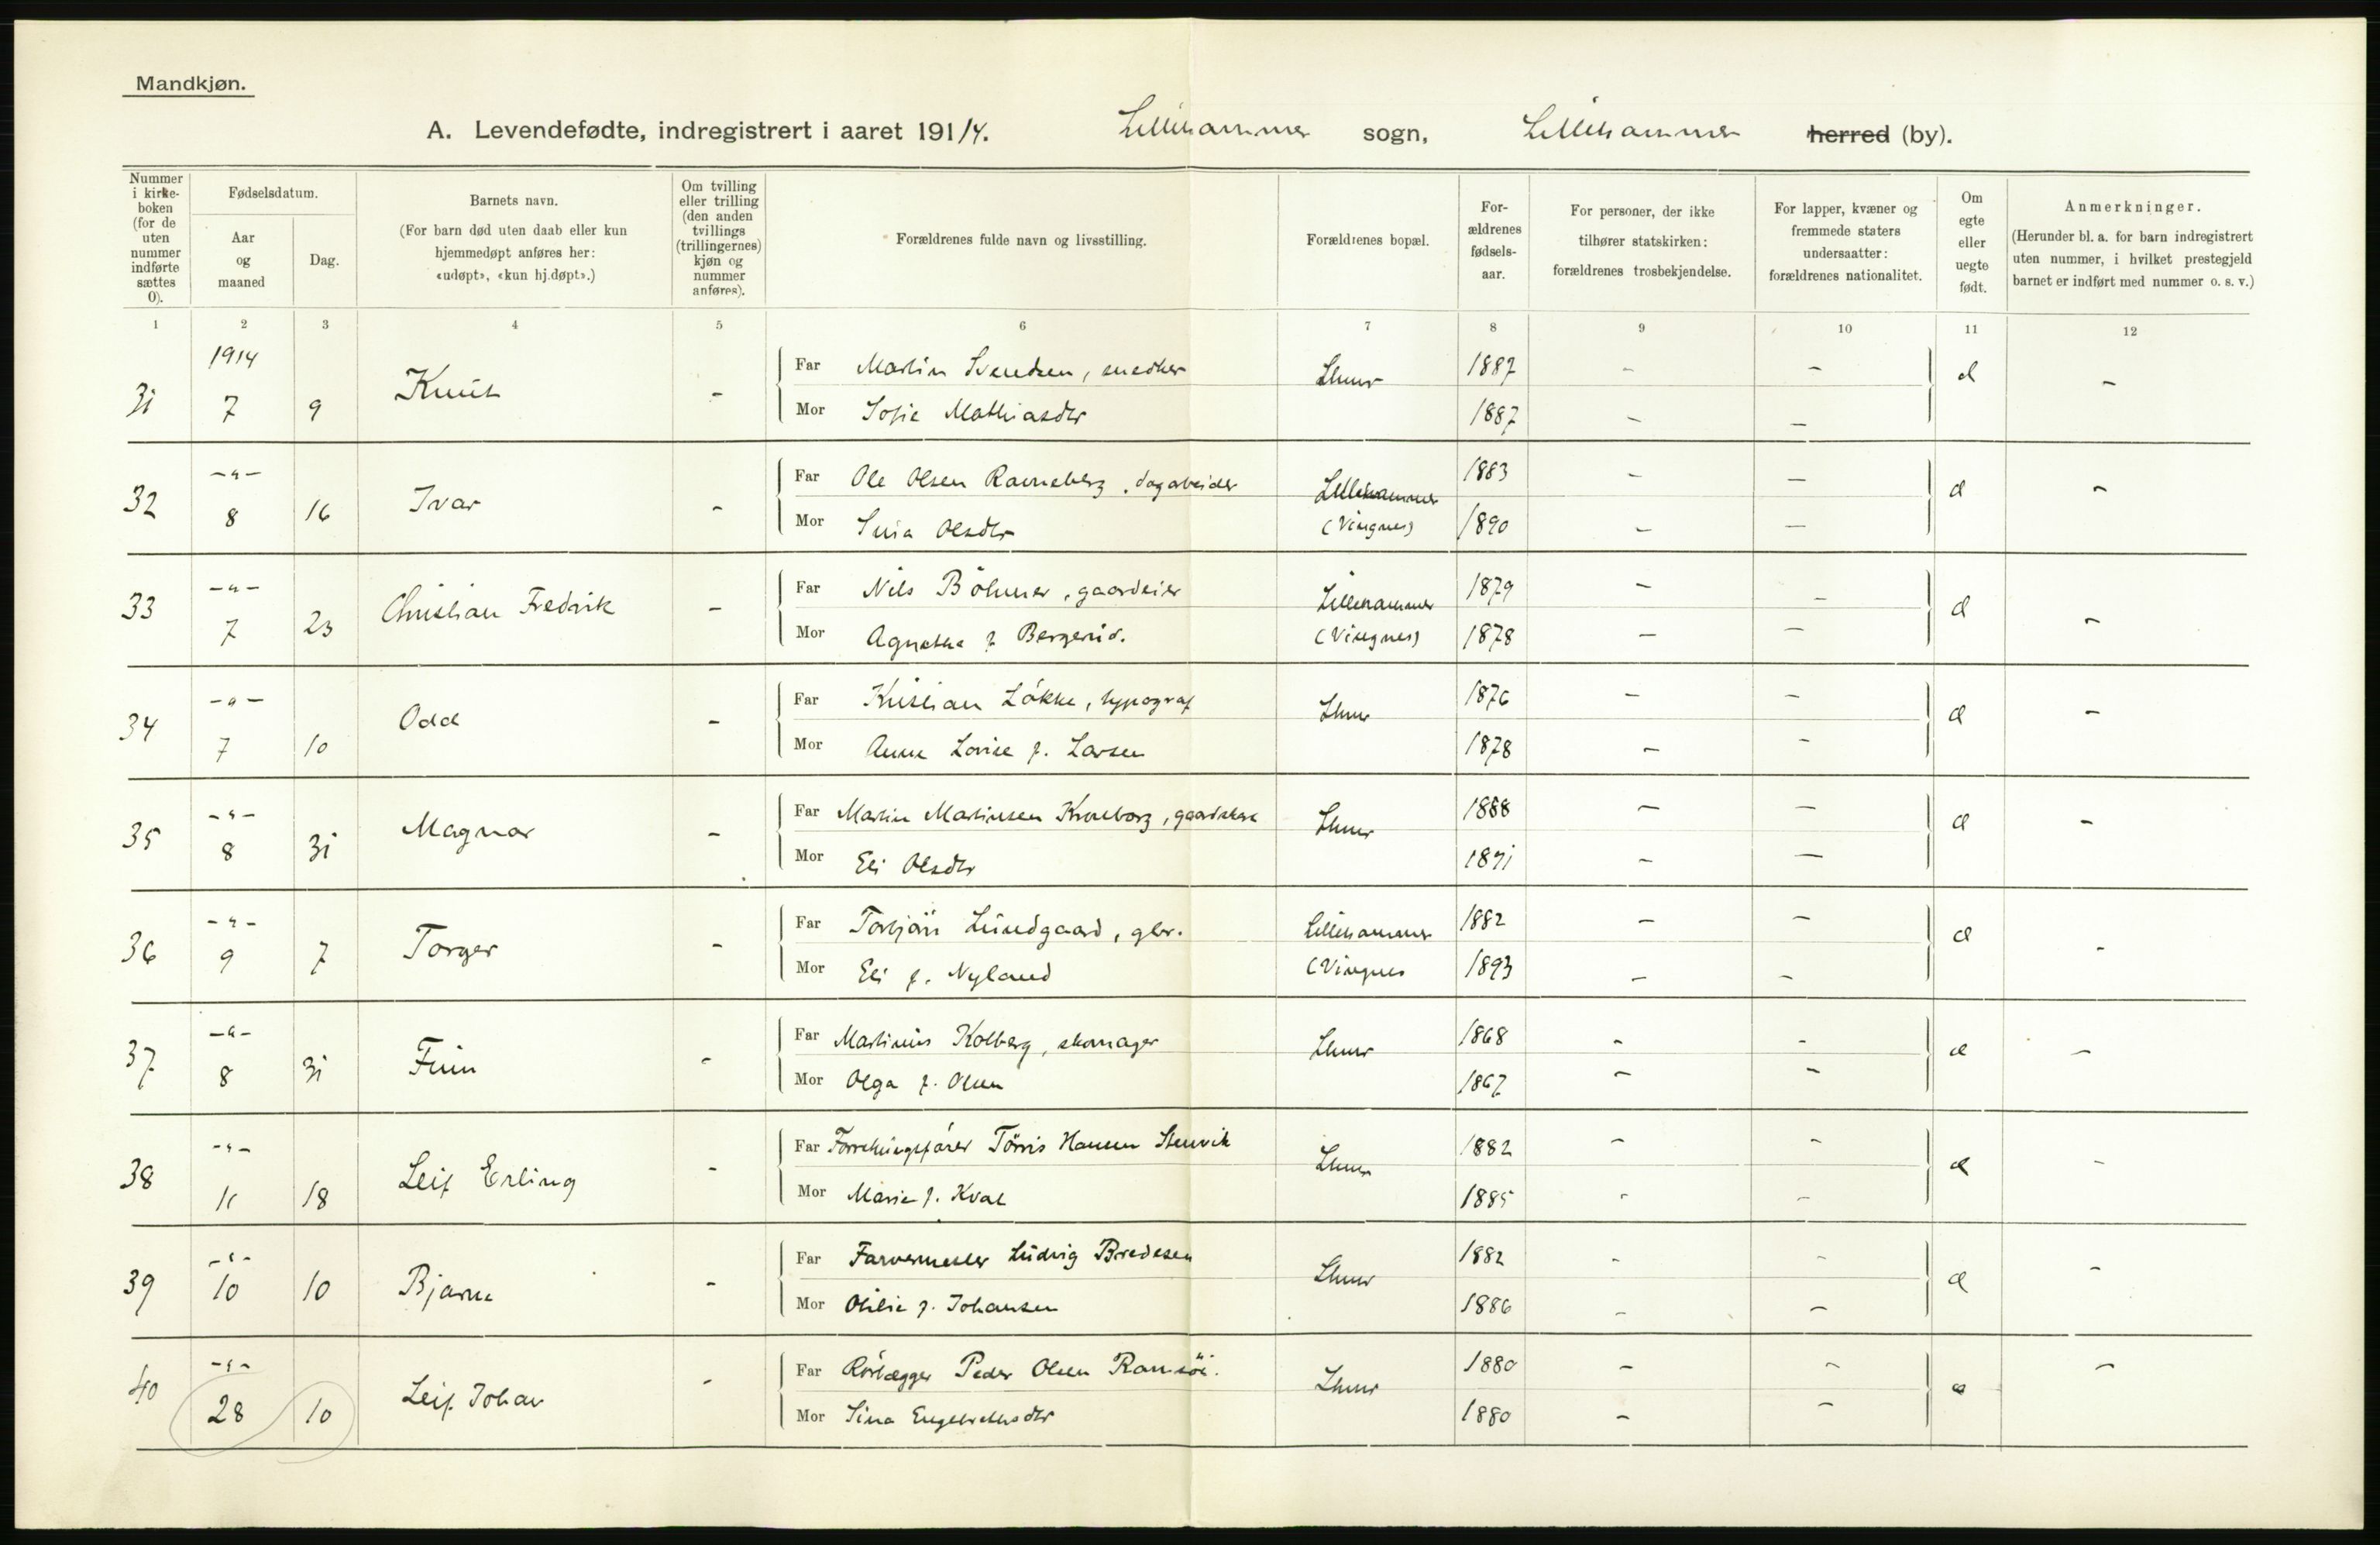 Mandkjøn.
A. Levendefødte, indregistrert i aaret 1914. Lillehammer sogn, Lillehammer herred (by).
Nummer i kirke-boken (for de uten nummer indførte sættes 0).
Fødselsdatum.
Aar og maaned
Dag.
Barnets navn.
(For barn død uten daab eller kun hjemmedøpt anføres her: «udøpt», «kun hj.døpt».)
Om tvilling eller trilling (den anden tvillings (trillingernes) kjøn og nummer anføres).
Forældrenes fulde navn og livsstilling.
Forældrenes bopæl.
For-ældrenes fødsels-aar.
For personer, der ikke tilhører statskirken: forældrenes trosbekjendelse.
For lapper, kvæner og fremmede staters undersaatter: forældrenes nationalitet.
Om egte eller uegte født.
Anmerkninger.
(Herunder bl. a. for barn indregistrert uten nummer, i hvilket prestegjeld barnet er indført med nummer o. s. v.)
1 2 3 4 5 6 7 8 9 10 11 12
1914
31 7 9 Knut - Far Martin Svendsen, snedker Lhmr 1887 - - -
Mor Sofie Mathiasdtr 1887 - -
-"-
32 8 16 Ivar - Far Ole Olsen Ravneberg, dagarbeider Lillehammer 1883 - - -
Mor Sina Olsdtr (Vingnes) 1890 - -
-"-
33 7 23 Christian Fredrik - Far Nils Böhmer, gaardeier Lillehammer 1879 - - -
Mor Agnethe f Bergerud. (Vingnes) 1878 - -
-"-
34 7 10 Odd - Far Kristian Løkke, typograf Lhmr 1876 - - -
Mor Anna Lovise f. Larsen 1878 - -
-"-
35 8 31 Magnar - Far Martin Martinsen Lhmr 1888 - - -
Mor Eli Olsdtr 1891 - -
-"-
36 9 7 Torger - Far Torbjörn Lundgaard, gbr. Lillehammer 1882 - - -
Mor Eli f. Nyland (Vingnes 1893 - -
-"-
37 8 31 Finn - Far Martinius Kolberg, skomager Lhmr 1868 - - -
Mor Olga f. Olsen 1867 - -
-"-
38 11 18 Leif Erling - Far Forretningsfører Törris Hansen Stenvik Lhmr 1882 - - -
Mor Marie f. Kval 1885 - -
-"-
39 10 10 Bjarne - Far Farvermester Ludvig Bredesen Lhmr 1882 - - -
Mor Otilie f. Johansen 1886 - -
-"-
40 28 10 Leif Johan - Far Rörlægger Peder Olsen Ramsöi. Lhmr 1880 - - -
Mor Sina Engebretsdtr 1880 - -